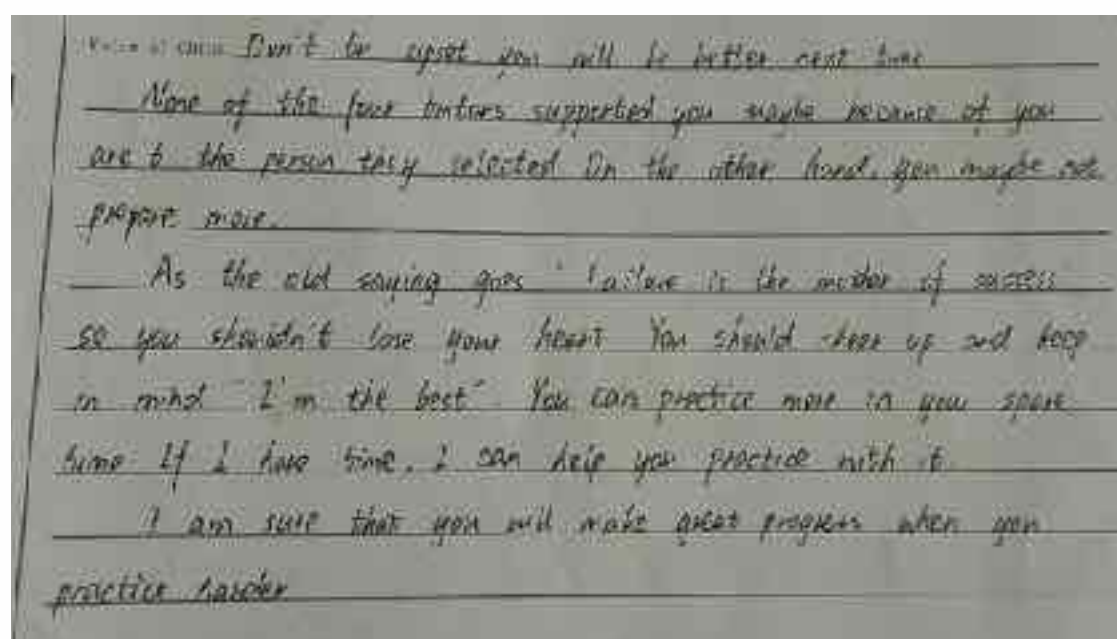 Voice of China Don't be upset you will be better next time
None of the four tutors supported you maybe because of you
are the person they selected On the other hand, you maybe not
prepare more.
As the old saying goes "Failure is the mother of success
so you shouldn't lose your heart You should cheer up and keep
in mind "I'm the best" You can practice more in your spare
time If I have time, I can help you practice with it
I am sure that you will make great progress when you
practice harder